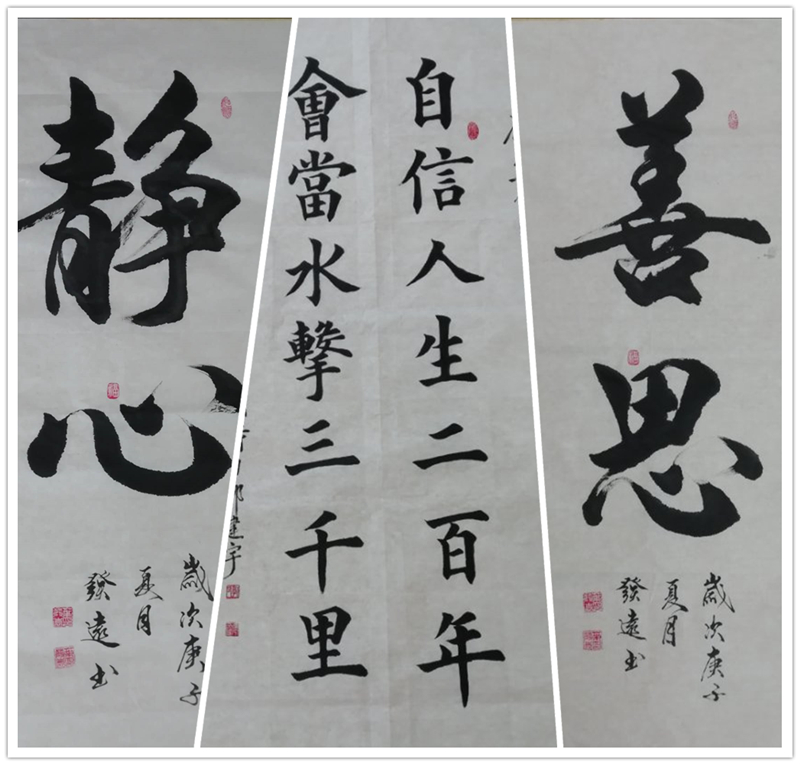 靜心
歲次庚子
夏月
發遠书
自信人生二百年
會當水擊三千里
建宇
善思
歲次庚子
夏月
發遠书